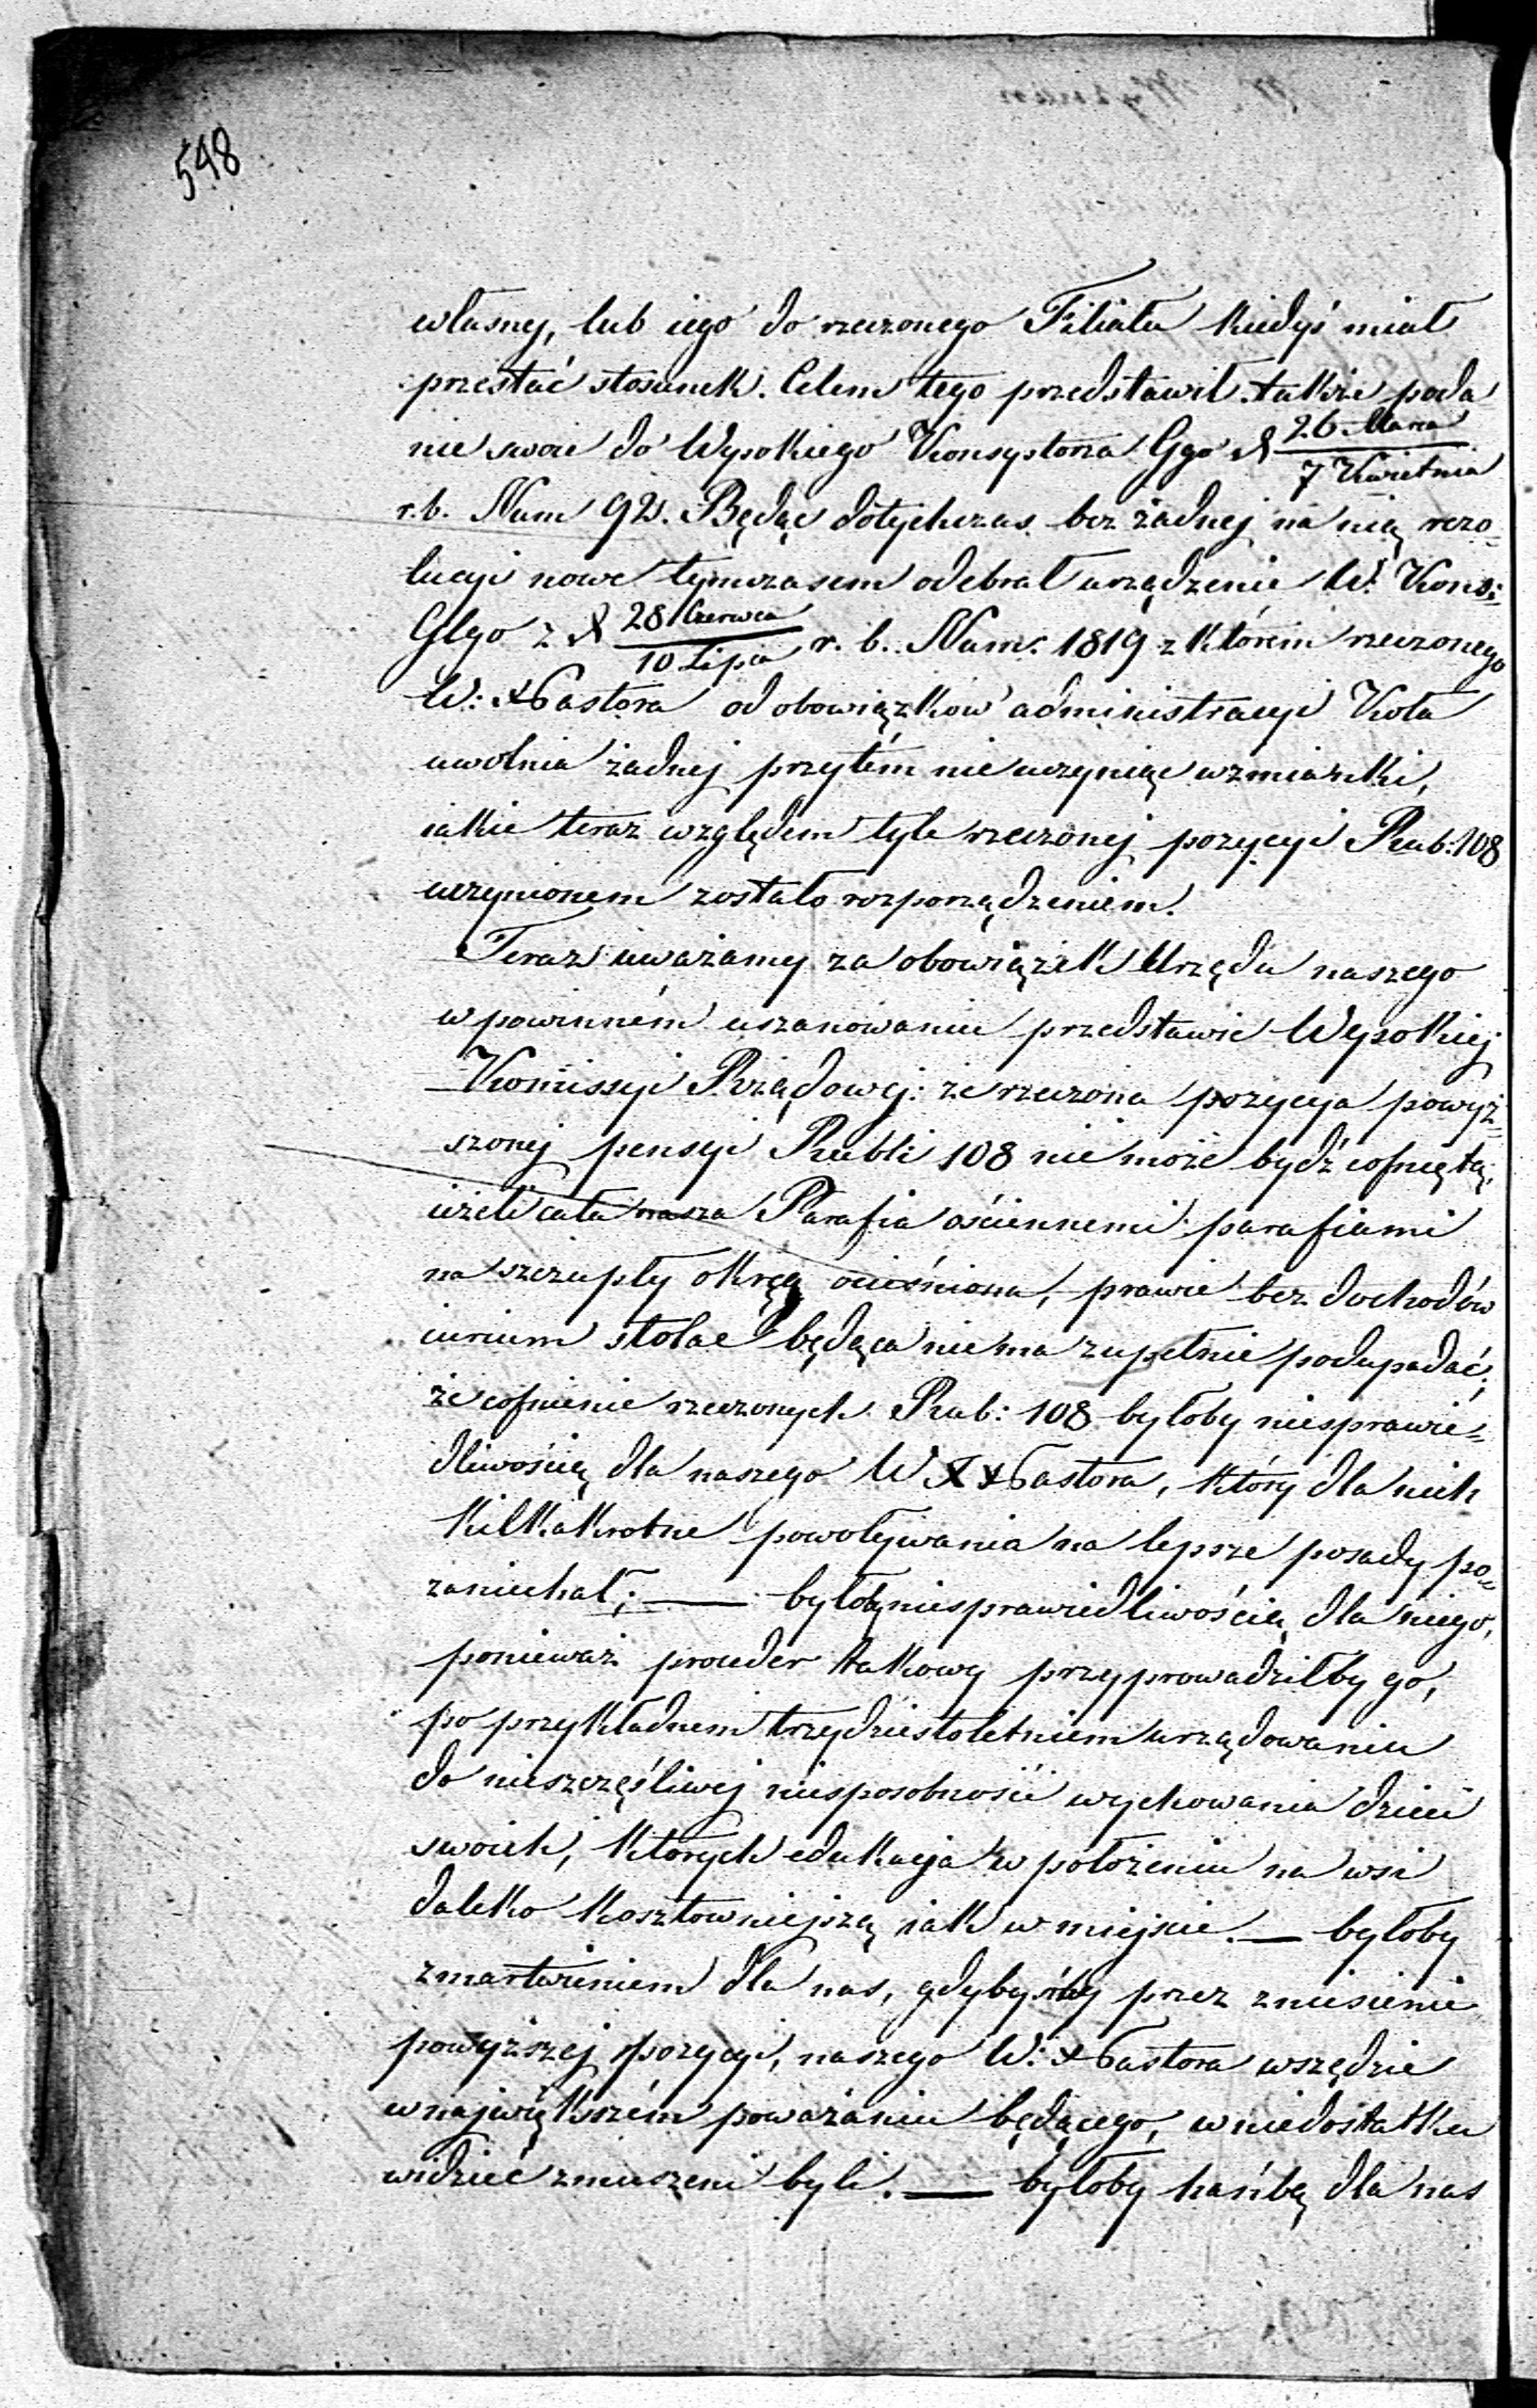 548
własnej, lub iego do rzeczonego Filiału kiedyś miał
przestać stosunek. Celem tego przedstawił także poda-
nie swoie do Wysokiego Konsystorza Ggo d 26 Marca / 7 Kwietnia
r. b. Num 92. Będąc dotychczas bez żadnej na nią rezo=
lucyi nowe tymczasem odebrał urządzenie W. Kons:
Glgo z d 28 Czerwca / 10 Lipca r. b. Num: 1819 z którem rzeczonego
W: X Pastora od obowiązków administracyi Koła
uwolnia żadnej przytém nie uczyniąc wzmianki,
iakie teraz względem tyle rzeczonej pozycyi Rub: 108
uczynionem zostało rozporządzeniem.
Teraz uważamy za obowiązek Urzędu naszego
w powinném uszanowaniu przedstawić Wysokiej
Komissyi Rządowej: że rzeczona pozycya powyż=
szonej pensyi Rubli 108 nie może bydź cofniętą,
iżeli cała nasza Parafia ościennemi parafiami
na szczupły okręg ocieśniona, prawie bez dochodów
iurium stolae będąca nie ma zupełnie podupadać;
że cofnienie rzeczonych Rub: 108 byłoby niesprawie=
dliwością dla naszego W X Pastora, który dla nich
kilkakrotne powoływania na lepsze posady po=
zaniechał; — byłoby niesprawiedliwością dla niego,
ponieważ proceder takowy przyprowadziłby go,
po przykładnem trzydziestoletniem urządowaniu
do nieszczęśliwej niesposobności wychowania dzieci
swoich, których edukacja w położeniu na wsi
daleko kosztowniejszą iak w miejscie. — byłoby
zmartwieniem dla nas, gdybyśmy przez zniesienie
powyższej pozycyi, naszego W: X Pastora wszędzie
w największém poważaniu będącego, w niedostatku
widzieć zmuszeni byli. — byłoby hańbą dla nas